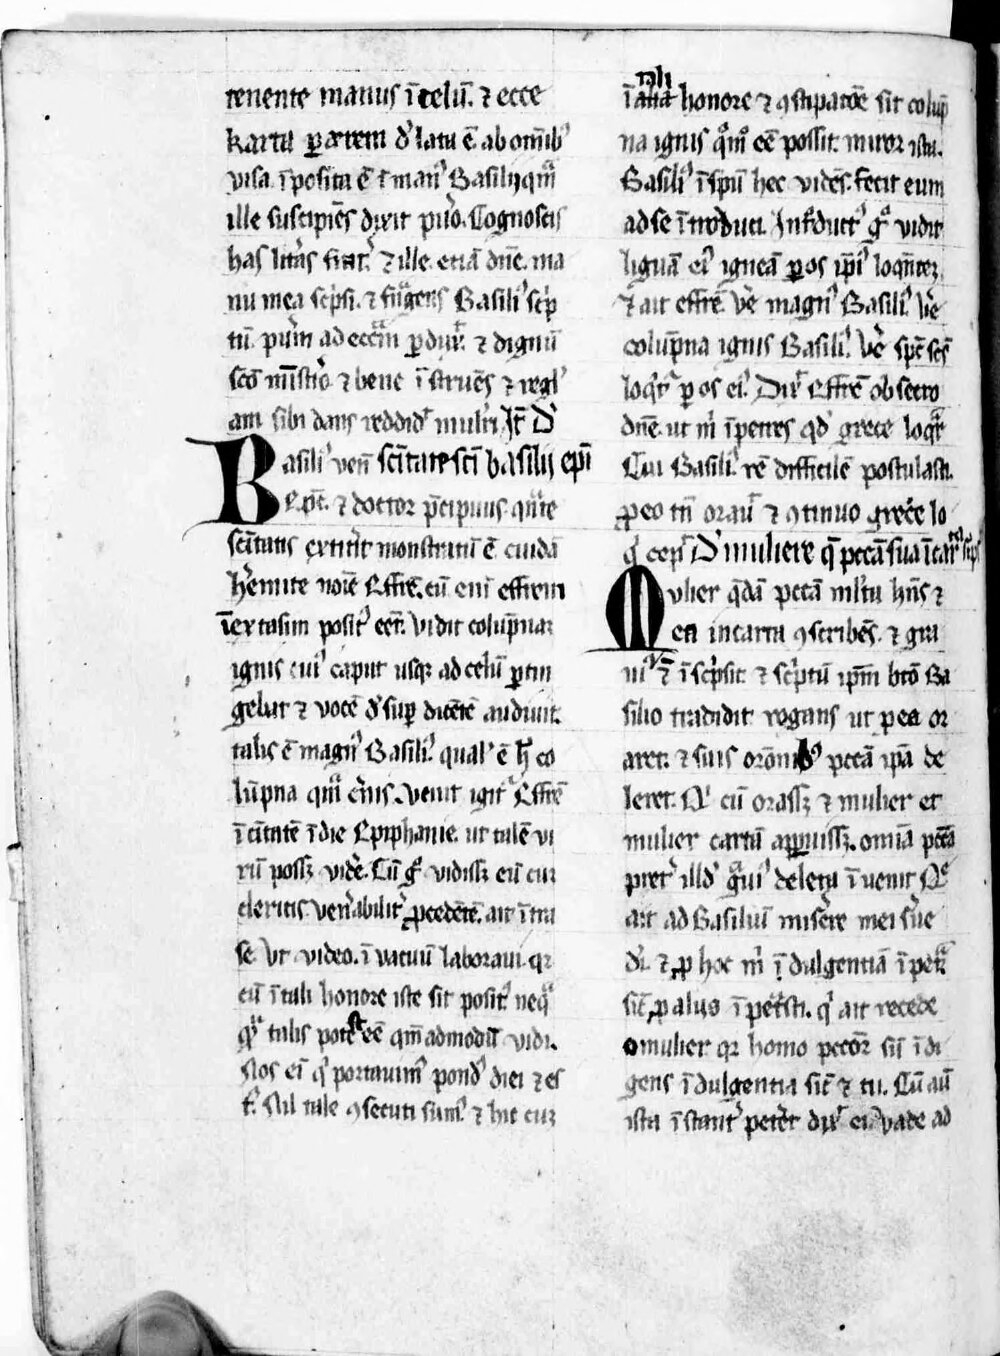 tenente manus ī celū. ⁊ ecce
karta ꝑ aerem d̕ lata ē ab om̄ib᷒
visa ī posita ē ī man᷒ Basilij qm̄
ille suscipiēs dixit pu̕o. Cognoscis
has lr̄as fr̄at̕. ⁊ ille. etiā dn̄e. ma
nu mea sc̕psi. ⁊ frāgens Basili᷒ sc̕p
tū. pu̕m ad eccl̄iam ꝑdux̕. ⁊ dignū
sc̄o mīst̕io ⁊ bene īstruēs ⁊ regl̕
am sibi dans reddid̕ mulr̕i It̄ D̕
Basili᷒ ven̄ sc̄itate sc̄i basilij ep̄i
e. ep̄c. ⁊ doctor p̄cipuus. qn̄te
sc̄itatis extit̕it monstratū ē cuidā
h̕emite noīe Effrē. cū eni effrem
ī extasim posit᷒ eēt. vidit colūpnaꝫ
ignis cui᷒ caput usqꝫ ad celū ꝑtin
gebat ⁊ vocē d̕sup dicētē audiuit.
talis ē magn᷒ Basili᷒. qual̕ ē h̄ co
lūpna quā c̕nis. Venit igit᷑ Effrē
ī ciuitatē ī die Epiphanie. ut talē vi
rū possꝫ vidē. Cū g̊ vidissꝫ eū cuꝫ
clericis ven̕abilit̕ ꝓcedētē. ait īt̕a
se. Vt video. ī vacuū laboraui. qꝛ
cū ī tali honore iste sit posit᷒ neq̄
q̄ talis potest eē qm̄admodū vidi.
Nos ei q̕ portauim᷒ pond᷒ diei ⁊ es
t᷒. Nil tale ꝯsecuti sum᷒. ⁊ hic cuꝫ
ī tali honore ⁊ ꝯstipatōe sit colūp
na ignis q̊mō eē possit. miror ista.
Basili᷒ ī sp̄u hec vidēs. fecit eum
ad se īt̕oduci. Int̕duct᷒ g̊ vidit
liguā ei᷒ igneā ꝑ os ip̄i᷒ loq̄ntē
⁊ ait effrē. Ve̕ magn᷒ Basili᷒. Ve̕
colūpna ignis Basili᷒. Ve̕ sp̄c sc̄s
loq̄t᷑ ꝑ os ei᷒. Dix̕ Effrē obsecro
dn̄e. ut m̕ īpetres qd̕ grece loq̄r
Cui Basili᷒. rē difficilē postulasti.
ꝓ eo tn̄ orau̕ ⁊ ꝯtinuo grece lo
q̕ cep̕ D̕ muliere q̄ pccā sua ī carta sc̕ps̕
Mulier q̄dā pccā mlr̕a hn̄s ⁊
ea in carta ꝯscribēs. ⁊ gra
ui᷒ ī īsc̕psit. ⁊ sc̕ptū ip̄m btō Ba
silio tradidit rogans ut p ea or
aret. ⁊ suis orōnib᷒ pccā ip̄a de
leret. Q̕ cū orassꝫ ⁊ mulier et
mulier cartā aꝑuissꝫ. omīa pccā
pret̕ illd̕ g̕ui᷒ deleta īuenit Q̄
ait ad Basiliū misere mei s̕ue
d̕i. ⁊ ꝓ hoc m̕ īdulgentiā īpet̕a
sic̄ ꝓ alijs īpet̕asti. q̕ ait recede
o mulier qꝛ homo pccōr sū īdi
gens īdulgentia sic̄ ⁊ tu. Cū aū
ista īstant̕ petēt dix̕ ei vade ad